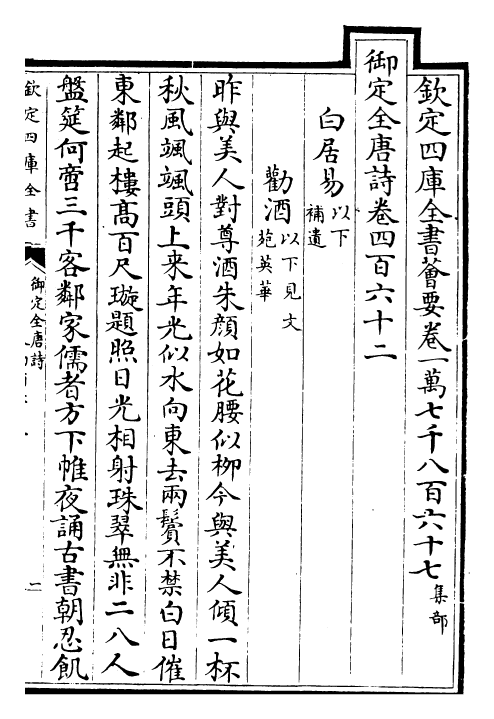 欽定四庫全書薈要卷一萬七千八百六十七集部
御定全唐詩卷四百六十二
白居易以下補遺
勸酒以下見文苑英華
昨與美人對尊酒朱顔如花腰似柳今與美人傾一杯
秋風颯颯頭上来年光似水向東去兩鬢不禁白日催
東鄰起樓髙百尺璇題照日光相射珠翠無非二八人
盤筵何啻三千客鄰家儒者方下帷夜誦古書朝忍飢
欽定四庫全書
御定全唐詩